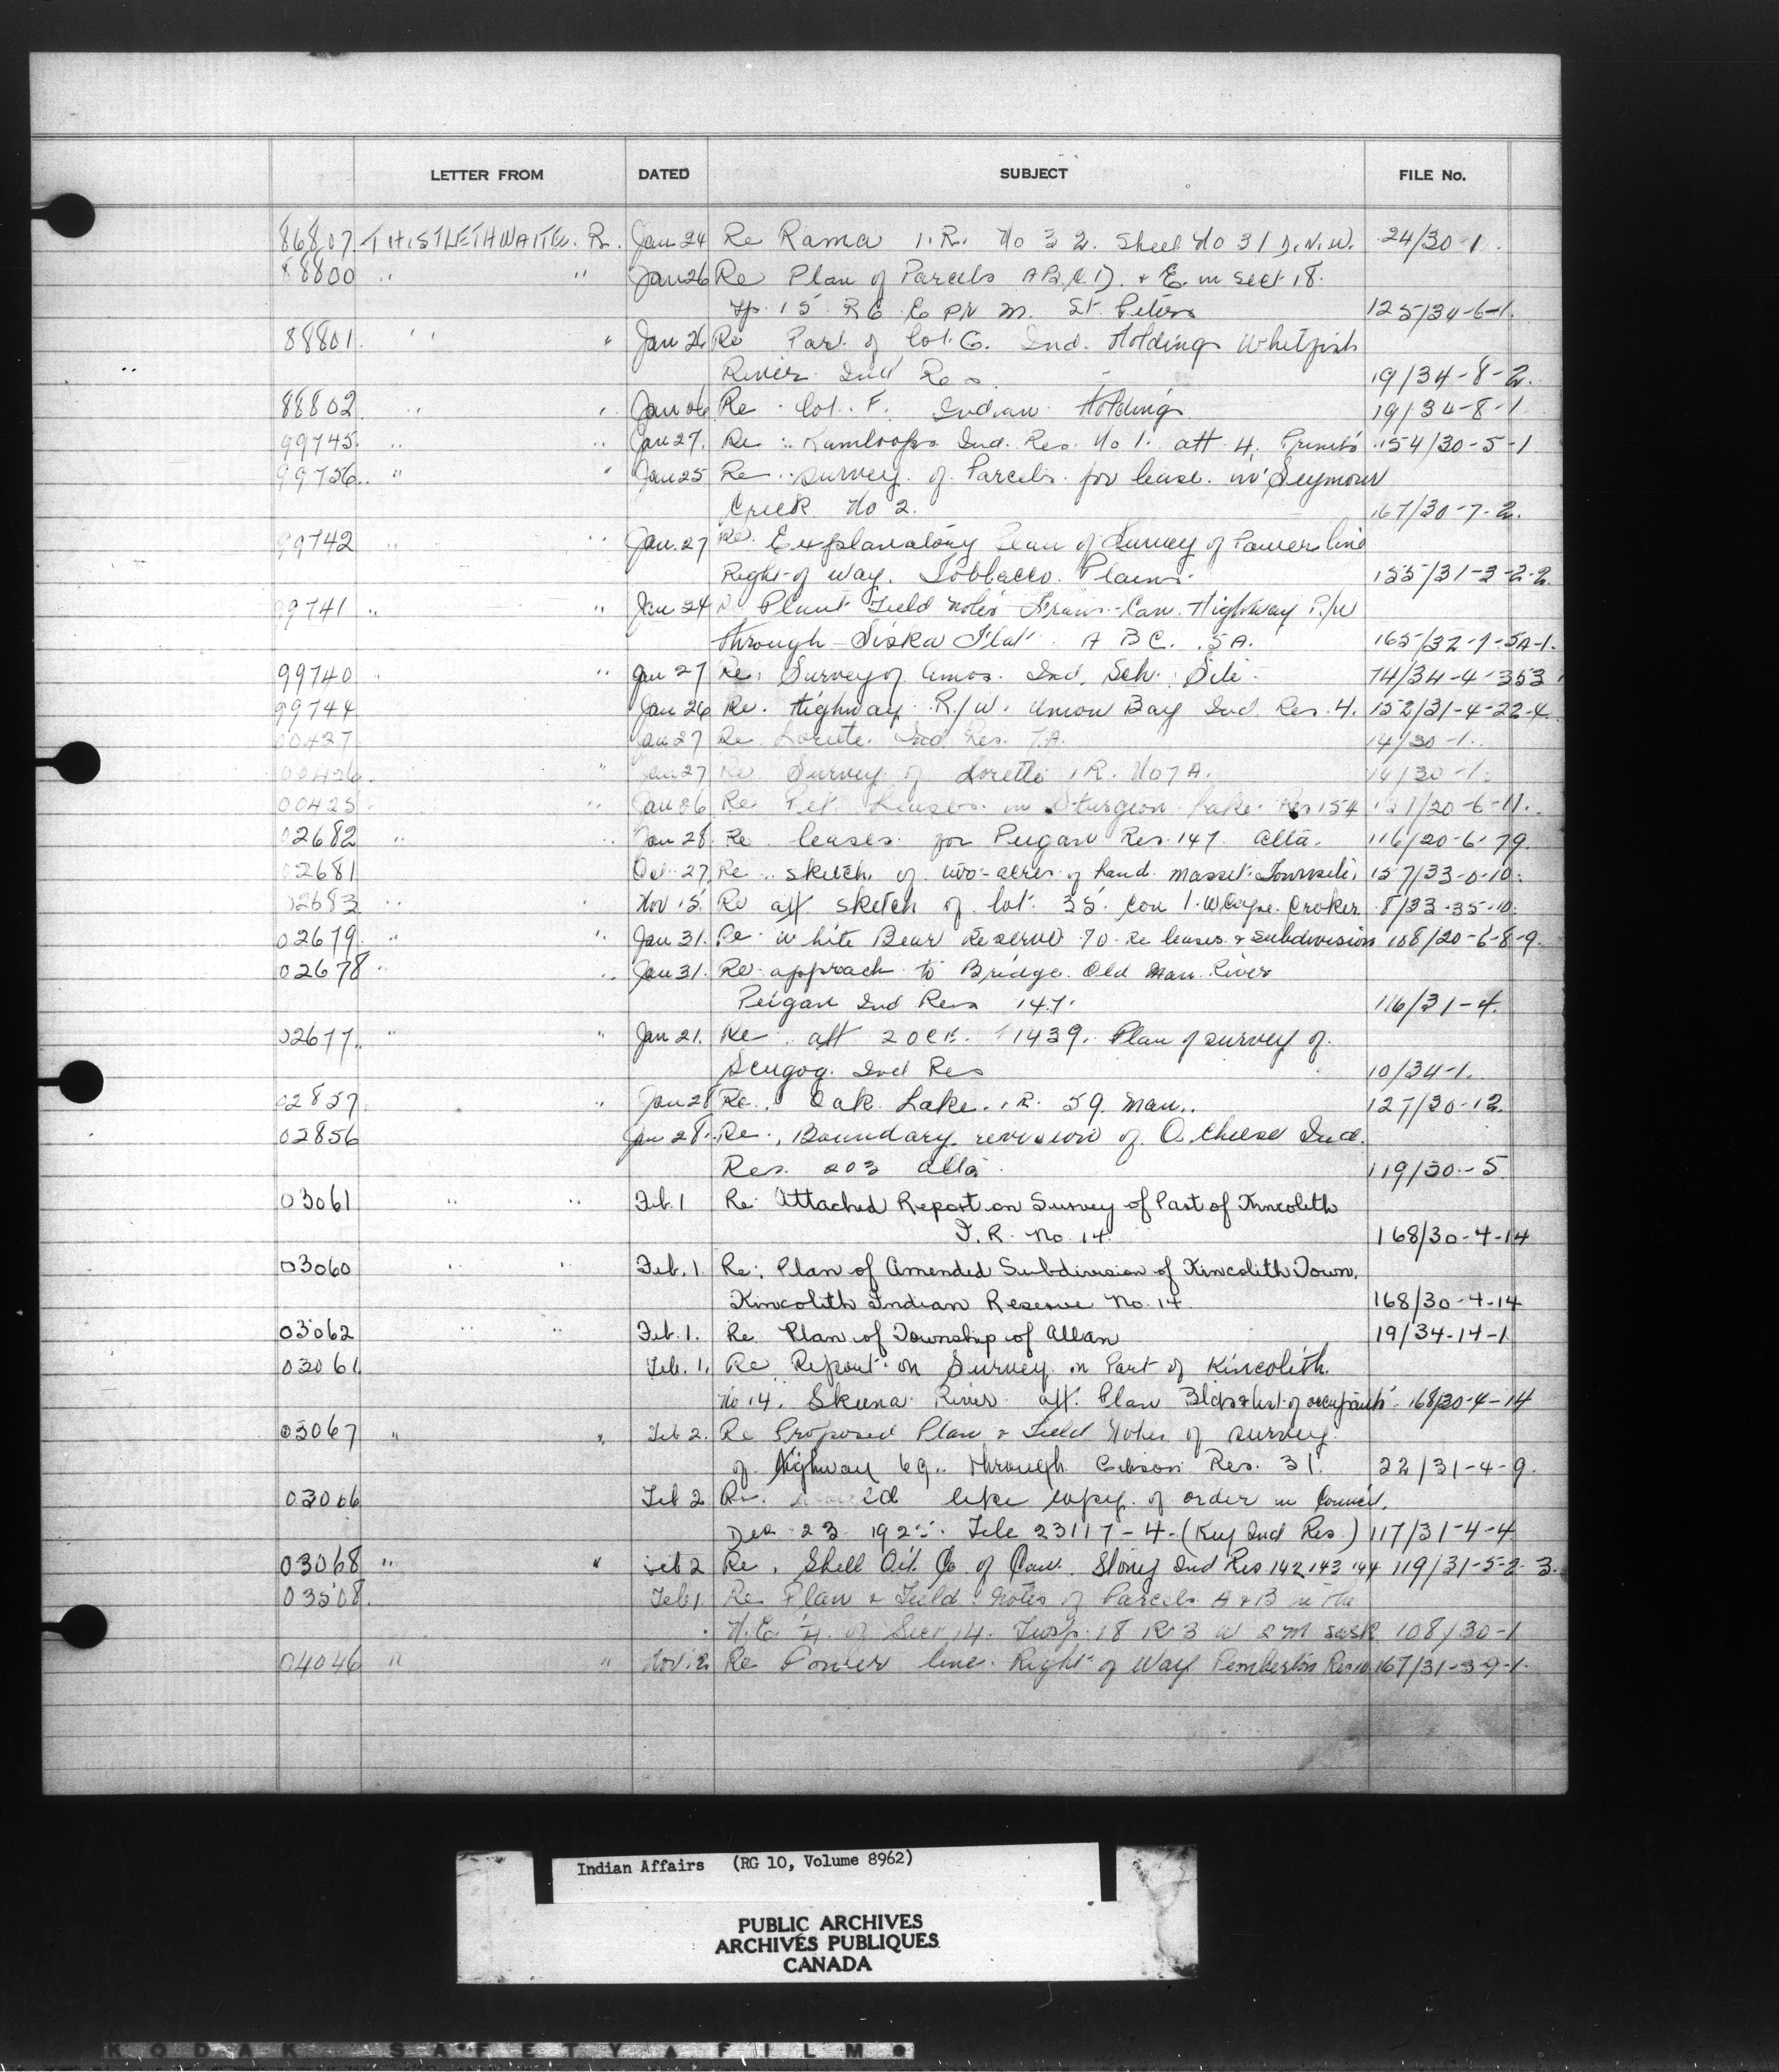 LETTER FROM DATED SUBJECT FILE No.
86807 THISTLETHWAITE. R. Jan 24 Re Rama I.R. No 32. Sheet No 31 24/30-1.
88800 " " Jan 26 Re Plan of Parcels A B C D. & E. in Sect 18.
Tp. 15 R 6 E Pr M. St Peters 125/34-6-1.
88801. " " Jan 26 Re Part of lot G. Ind. Holdings Whitefish
River Ind Res. 19/34-8-2.
88802 " " Jan 26 Re lot. F. Indian Holdings 19/34-8-1
99745 " " Jan 27. Re Kamloops Ind. Res. No 1. att 4. Prints 154/30-5-1
99756 " " Jan 25 Re survey of Parcels for lease in Seymour
Creek No 2. 167/30-7-2.
99742 " " Jan. 27 Re. Explanatory Plan of Survey of Power line
Right of Way. Tobbacco Plains. 155/31-3-2-2
99741 " " Jan 24 Plan & Field Notes Trans-Can. Highway R/W
through Siska Flat A B C. 5A. 165/32-7-5A-1.
99740 " Jan 27 Re: Survey of Amos. Ind. Sch. Site 74/34-4-353
99744 Jan 26 Re. Highway R/W. Union Bay Ind. Res. 4. 152/31-4-22-4
00427 Jan 27 Re Lorette. Ind. Res. 7A. 14/30-1.
00426. " Jan 27 Re Survey of Lorette I.R. No 7A. 14/30-1.
00425 " Jan 26 Re Pet. Leases in Sturgeon Lake Res 154 121/20-6-11.
02682 " " Jan 28. Re leases for Peigan Res. 147 Alta. 116/20-6-79.
02681 Oct. 27. Re sketch of two-acres of land Masset Townsite 157/33-0-10.
02683 " " Nov 15. Re att sketch of lot 35 Con 1. W Cape Croker 8/33-35-10.
02679. " " Jan 31. Re White Bear Reserve 70 Re leases & subdivision 108/20-6-8-9.
02678 " " Jan 31. Re approach to Bridge Old Man River
Peigan Ind Res 147. 116/31-4.
02677. " " Jan 21. Re att 1439. Plan of survey of
Scugog Ind Res 10/34-1.
02857 " Jan 28 Re. Oak Lake. I.R. 59. Man.. 127/30-12.
02856 Jan 28. Re. Boundary revision of O. Cheese Ind.
Res. 203 Alta. 119/30-5
03061 " " Feb. 1 Re: Attached Report on Survey of Part of Kincolith
I.R. No. 14. 168/30-4-14
03060 " " Feb. 1. Re: Plan of Amended Subdivision of Kincolith Town,
Kincolith Indian Reserve No. 14 168/30-4-14
03062 " " Feb. 1. Re. Plan of Township of Allan 19/34-14-1
03061 Feb. 1. Re Report on Survey on Part of Kincolith
No 14. Skeena River att. Plan Bldgs & list of occupants. 168/30-4-14
03067 " " Feb 2. Re Proposed Plan & Field Notes of survey
of Highway 69.. through Gibson Res. 31. 22/31-4-9.
03066 Feb 2 Re. like copy of order in Council.
Dec 23 File 23117-4-(Key Ind Res.) 117/31-4-4
03068 " " Feb 2 Re. Shell Oil Co of Can. Stony Ind Res 142 143 144 119/31-5-2-3.
03508. Feb 1. Re Plan & Field Notes of Parcels A & B in the
N.E. ¼ of Sec 14. Twsp. 18 R 3 W 2 M Sask 108/30-1
04046 " " Nov. 12 Re Power line Right of Way Pemberton Res 10 167/31-3-9-1.
Indian Affairs (RG 10, Volume 8962)
PUBLIC ARCHIVES
ARCHIVES PUBLIQUES
CANADA
KODAK SAFETY FILM